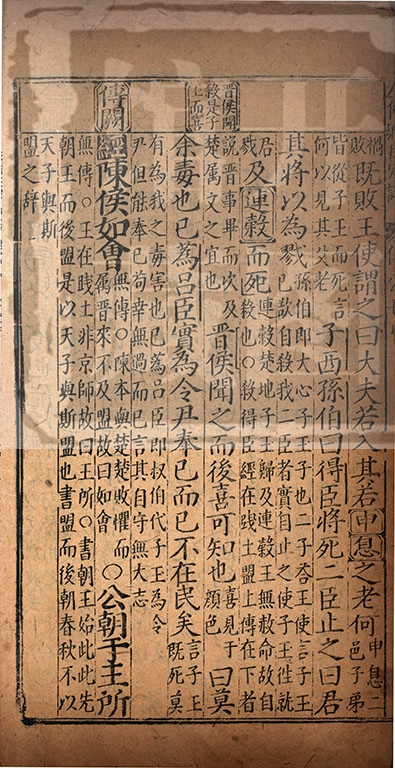 晉侯聞
殺是子
上而喜
傳闕
禍
敗
既敗王使謂之曰大夫若入其若申息之老何
申息二
邑子弟
皆從子王而死言
何以見其父老
子西孫伯曰得臣將死二臣止之曰君
其將以為戮
孫伯即大心子王子也二子荅王使言子王
已欲自殺我二臣者實自止之使子王徃就
君
戮
及連穀而死
連穀楚地子王歸及連穀王無赦命故自
殺也○殺得臣經在踐土盟上傳在下者
說晉事畢而次及
楚厲文之宜也
晉侯聞之而後喜可知也
喜見于
顏色
曰莫
余毒也已蔿吕臣實為令尹奉已而已不在民矣
言子王
既死莫
有為我之毒害也已蔿吕臣即叔伯代子王為令
尹但能奉已苟幸無過而已言其自守無大志
經陳侯如會
無傳○陳本與楚楚敗懼而
属晉來不及盟故曰如會
○公朝于王所
無傳○王在踐土非京師故曰王所○書朝王始此此先
朝王而後盟是以天子與斯盟也書盟而後朝春秋不以
天子與斯
盟之辭